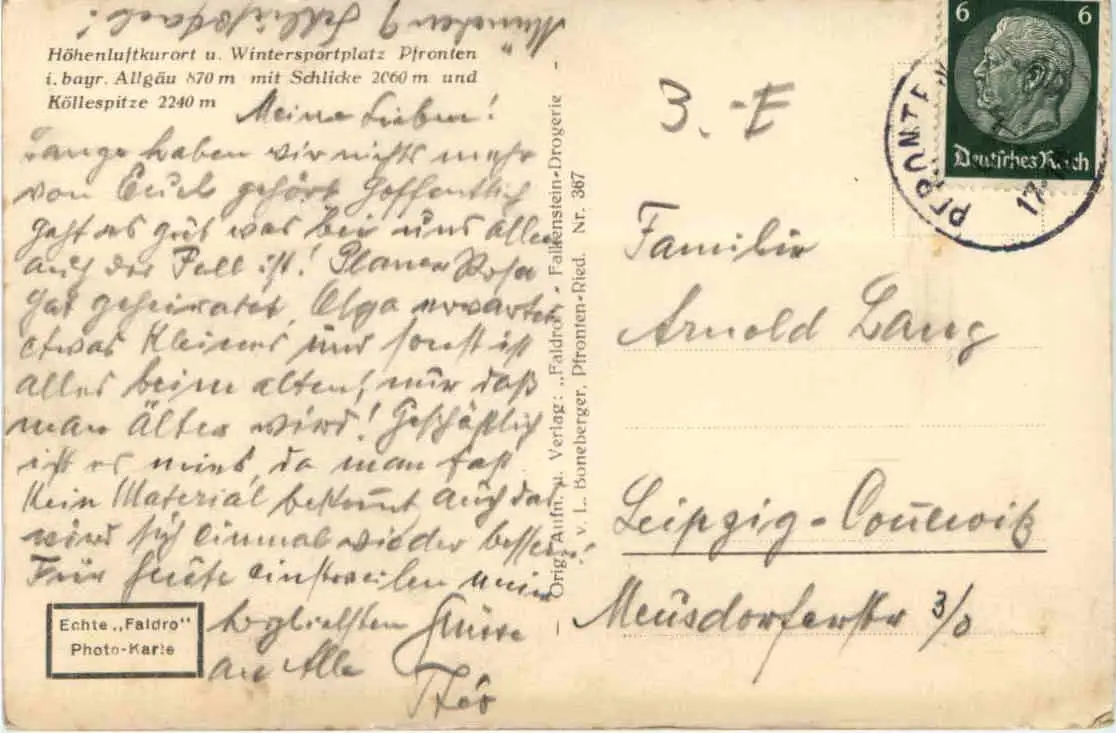 Höhenluftkurort u. Wintersportplatz Pfronten
i. bayr. Allgäu 870 m mit Schlicke 2060 m und
Köllespitze 2240 m
Meine Lieben!
Lange haben wir nichts mehr
von Euch gehört hoffentlich
geht es gut was bei uns allen
auch der Fall ist! Rosa
hat geheiratet, Olga erwartet
etwas Kleines und sonst ist
alles beim alten, nur daß
man älter wird! Geschäftlich
ist es mies, da man fast
kein Material bekommt auch das
wird sich einmal wieder bessern!
Für heute einstweilen meine
herzlichsten Grüsse
an Alle
München
Echte „Faldro"
Photo-Karte
Orig. Aufn. u. Verlag: „Faldro" - Falkenstein-Drogerie
v. L. Boneberger, Pfronten-Ried. Nr. 367
3. - E
6 6
Deutsches Reich
PFRONTEN
17.
Familie
Arnold Lang
Leipzig-Connewitz
Meusdorferstr 3/0